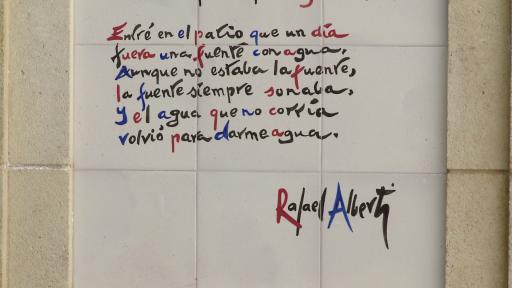 Entré en el patio que un día
fuera una fuente con agua.
Aunque no estaba la fuente,
la fuente siempre sonaba.
Y el agua que no corría
volvió para darme agua.
Rafael Alberti